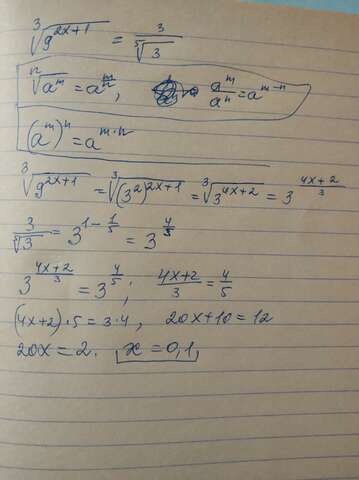 ∛(9^(2x+1)) = 3/⁵√3
ⁿ√(a^m) = a^(m/n), a^m/a^n = a^(m-n)
(a^m)^n = a^(m·n)
∛(9^(2x+1)) = ∛((3²)^(2x+1)) = ∛(3^(4x+2)) = 3^((4x+2)/3)
3/⁵√3 = 3^(1-1/5) = 3^(4/5)
3^((4x+2)/3) = 3^(4/5); (4x+2)/3 = 4/5
(4x+2)·5 = 3·4, 20x+10=12
20x = 2. x = 0,1